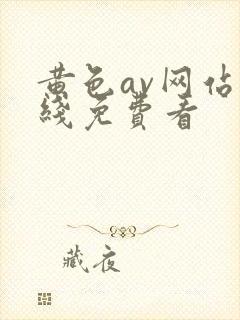 黄色av网占
线免费看
藏夜